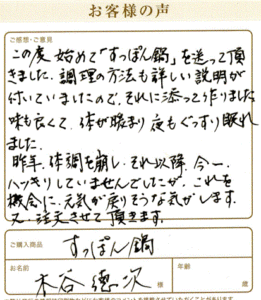 お客様の声
ご感想・ご意見
この度 始めて「すっぽん鍋」を送って頂
きました。調理の方法も詳しい説明が
付いていましたので、それに添って作りました
味も良くて、体が暖まり 夜もぐっすり眠れ
ました。
昨年、体調を崩し、それ以降、今一、
ハッキリしていませんでしたが、これを
機会に、元気が戻りそうな気がします。
又、注文させて頂きます。
ご購入商品
すっぽん鍋
お名前
木谷 德次 様
年齢
歳